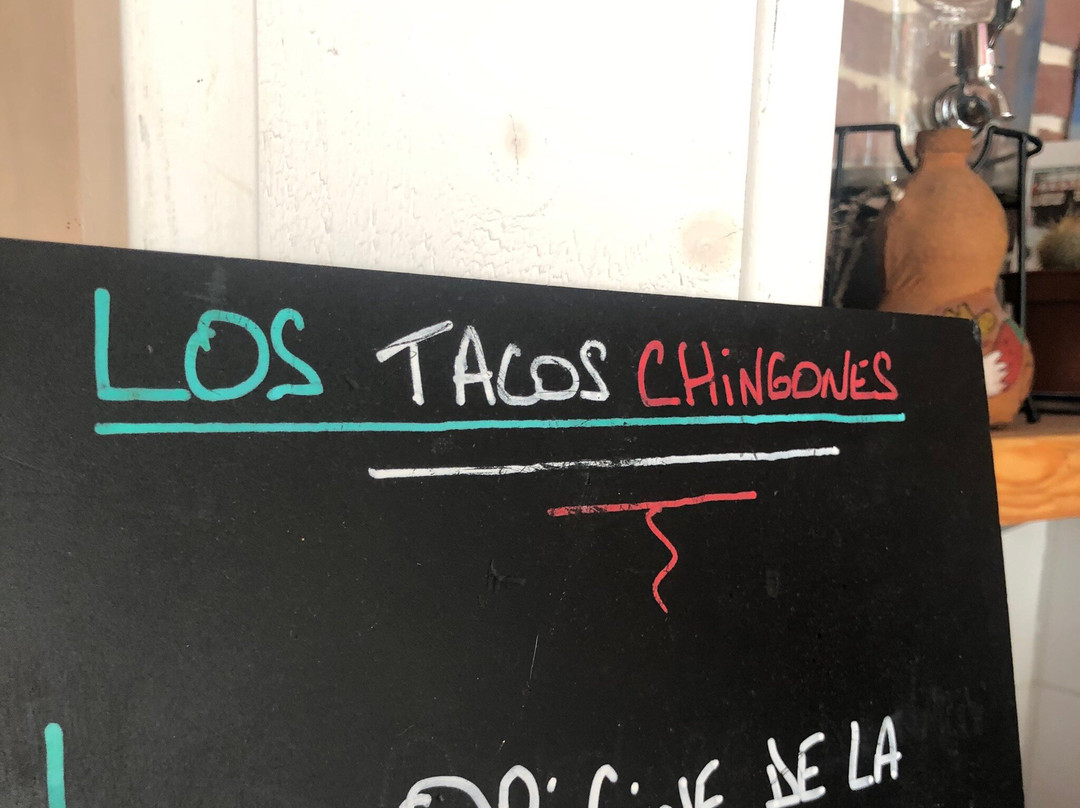 LOS TACOS CHiNGONES
ORiGiNE DE LA